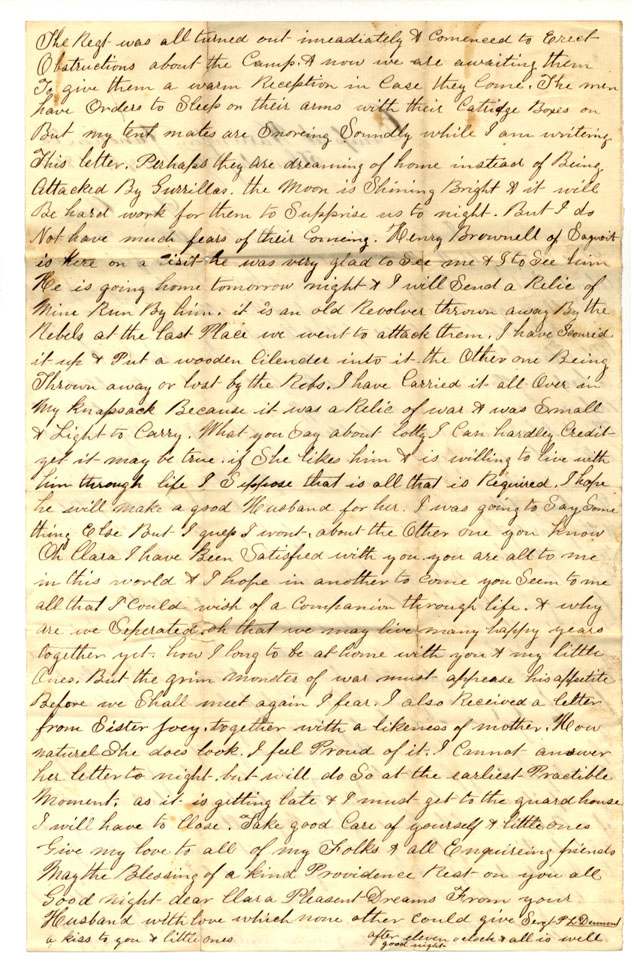 The Regt was all turned out imeadiately & comenced to Erect
Obstructions about the Camp. & now we are awaiting them
To give them a warm Reception in Case they Come. The men
have Orders to Sleep on their arms with their Catridge Boxes on
But my tent mates are Snoreing Soundly while I am writeing
This letter. Perhaps they are dreaming of home instead of Being
Attacked By Gurrillas. the Moon is Shining Bright & it will
Be hard work for them to Supprise us to night. But I do
Not have much fears of their Comeing. Henry Brownell of Sagnoit
is Here on a visit he was very glad to See me & I to See him
He is going home tomorrow night & I will Send a Relic of
Mine Run By him. it is an old Revolver thrown away By the
Rebels at the last Place we went to attack them. I have Scoured
it up & Put a wooden Cilender into it the Other one Being
Thrown away or lost by the Rebs. I have Carried it all Over in
My Knapsack Because it was a Relic of war & was Small
& Light to Carry. What you Say about lotty I Can hardley Credit
yet it may be true. if She likes him & is willing to live with
him through life I Suppose that is all that is Required. I hope
he will make a good Husband for her. I was going to Say Some
thing Else But I guess I wont. about the Other one you Know
Oh Clara I have Been Satisfied with you. you are all to me
in this world & I hope in another to Come you Seem to me
all that I Could wish of a Companion through life. & why
are we Seperated. oh that we may live many happy years
together yet. how I long to be at home with you & my little
Ones. But the grim Monster of war must appease his appetite
Before we Shall meet again I fear. I also Received a letter
from Sister Joey. together with a likeness of mother. How
naturel She does look. I feel Proud of it. I Cannot answer
her letter to night. but will do So at the earliest Practible
Moment. as it is getting late & I must get to the guard house
I will have to Close. Take good Care of yourself & little ones
Give my love to all of my Folks & all Enquireing friends
May the Blessing of a Kind Providence Rest on you all
Good night dear Clara Pleasent Dreams From your
Husband with love which none other could give Sergt P L Dermont
a kiss to you & little ones after eleven oclock & all is well
good night